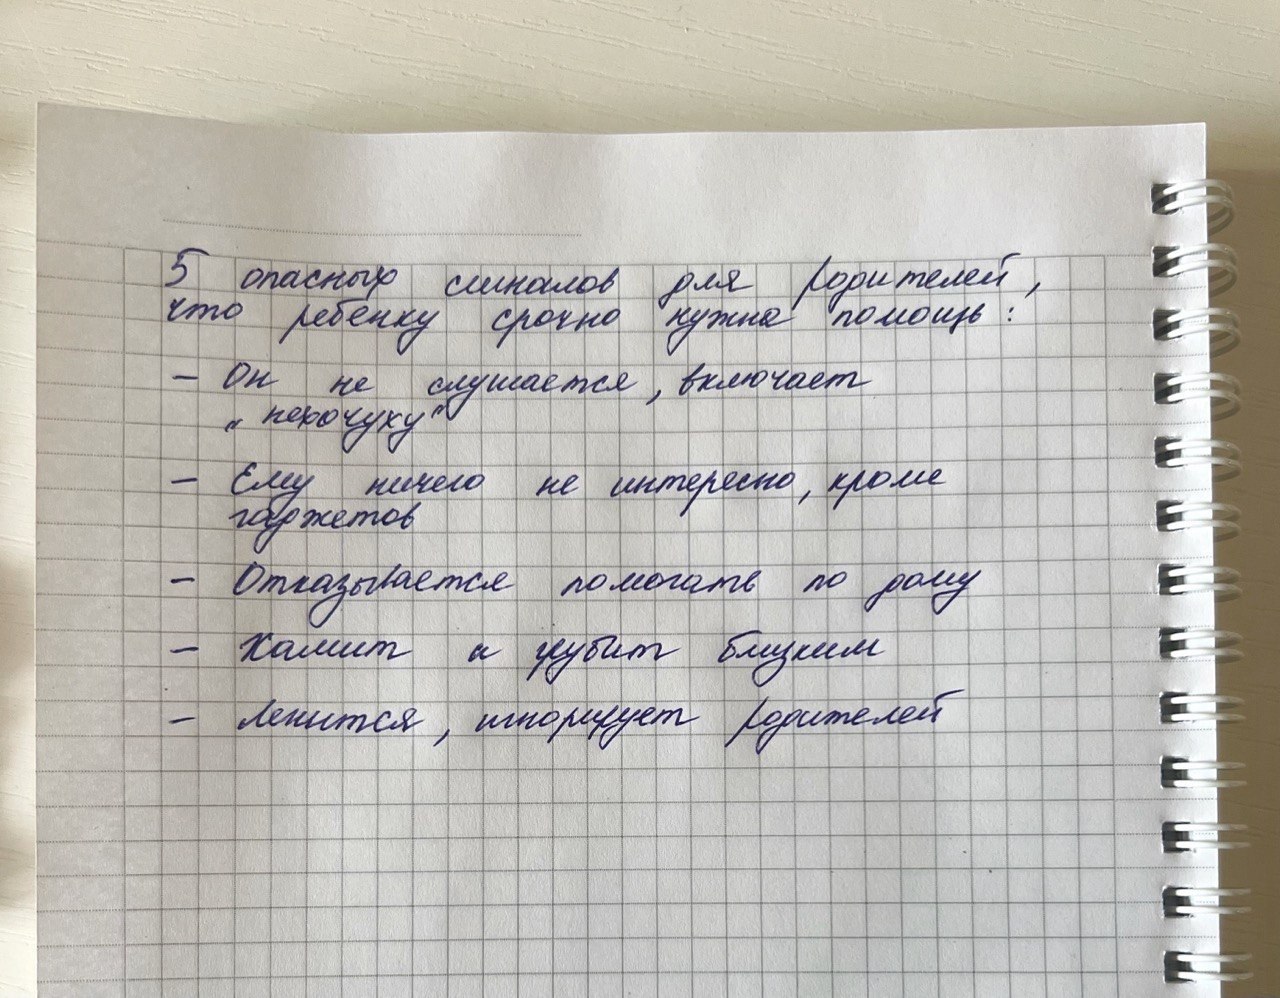 5 опасных сигналов для родителей,
что ребенку срочно нужна помощь:
- Он не слушается, включает
„нехочуху"
- Ему ничего не интересно, кроме
гаджетов
- Отказывается помогать по дому
- Хамит и грубит близким
- Ленится, игнорирует родителей